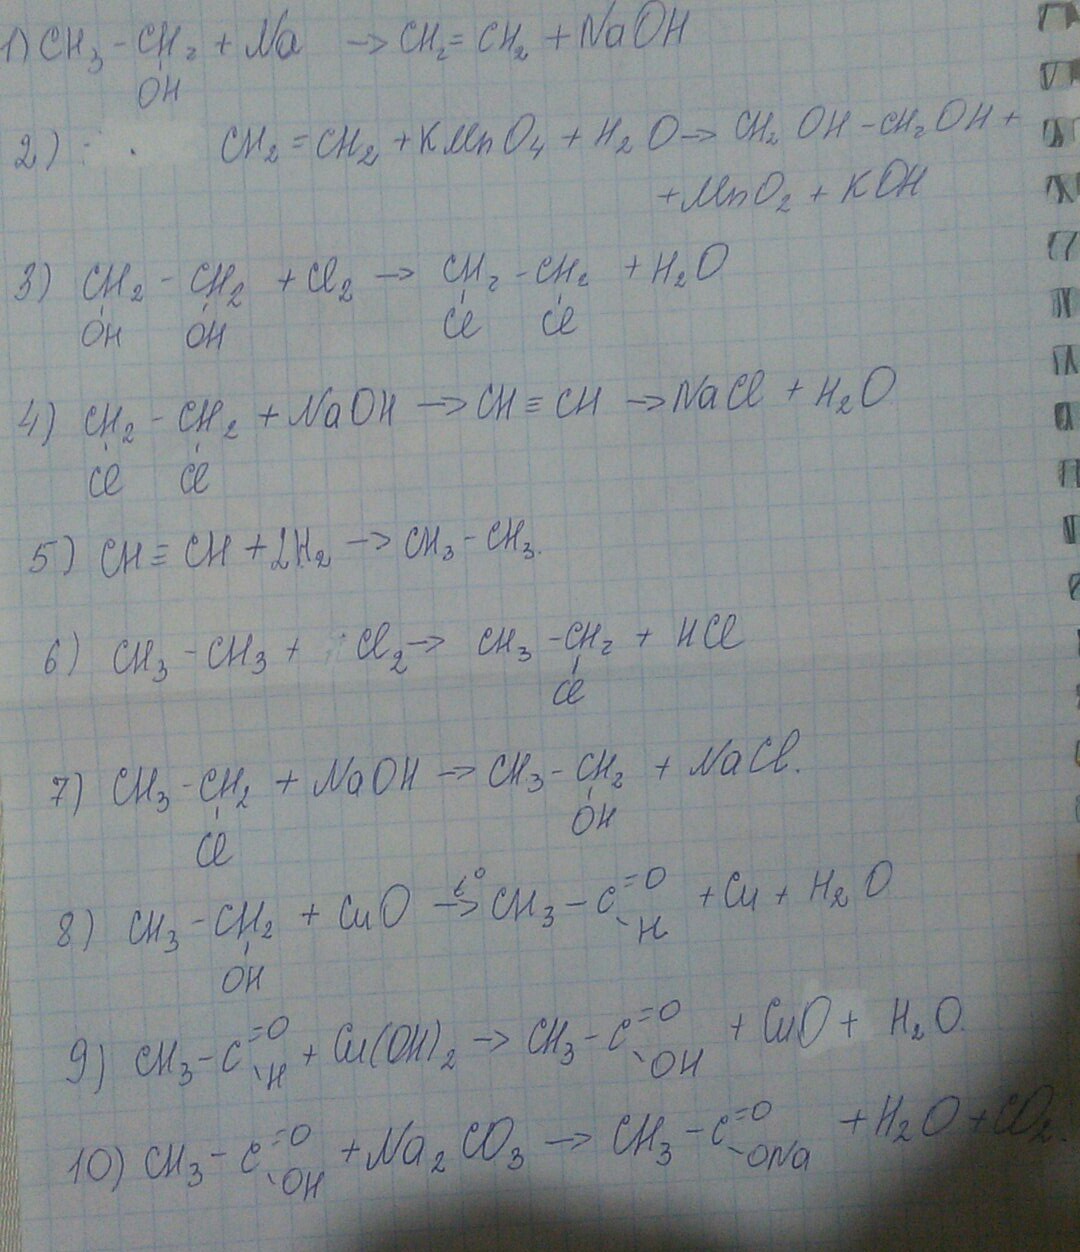 1) CH3 - CH2 + Na → CH2 = CH2 + NaOH
OH
2) CH2 = CH2 + KMnO4 + H2O → CH2OH - CH2OH +
+ MnO2 + KOH
3) CH2 - CH2 + Cl2 → CH2 - CH2 + H2O
OH OH Cl Cl
4) CH2 - CH2 + NaOH → CH ≡ CH → NaCl + H2O
Cl Cl
5) CH ≡ CH + 2H2 → CH3 - CH3.
6) CH3 - CH3 + Cl2 → CH3 - CH2 + HCl
Cl
7) CH3 - CH2 + NaOH → CH3 - CH2 + NaCl.
Cl OH
8) CH3 - CH2 + CuO t° → CH3 - C =O H + Cu + H2O
OH
9) CH3 - C =O H + Cu(OH)2 → CH3 - C =O OH + CuO + H2O.
10) CH3 - C =O OH + Na2CO3 → CH3 - C =O ONa + H2O + CO2.